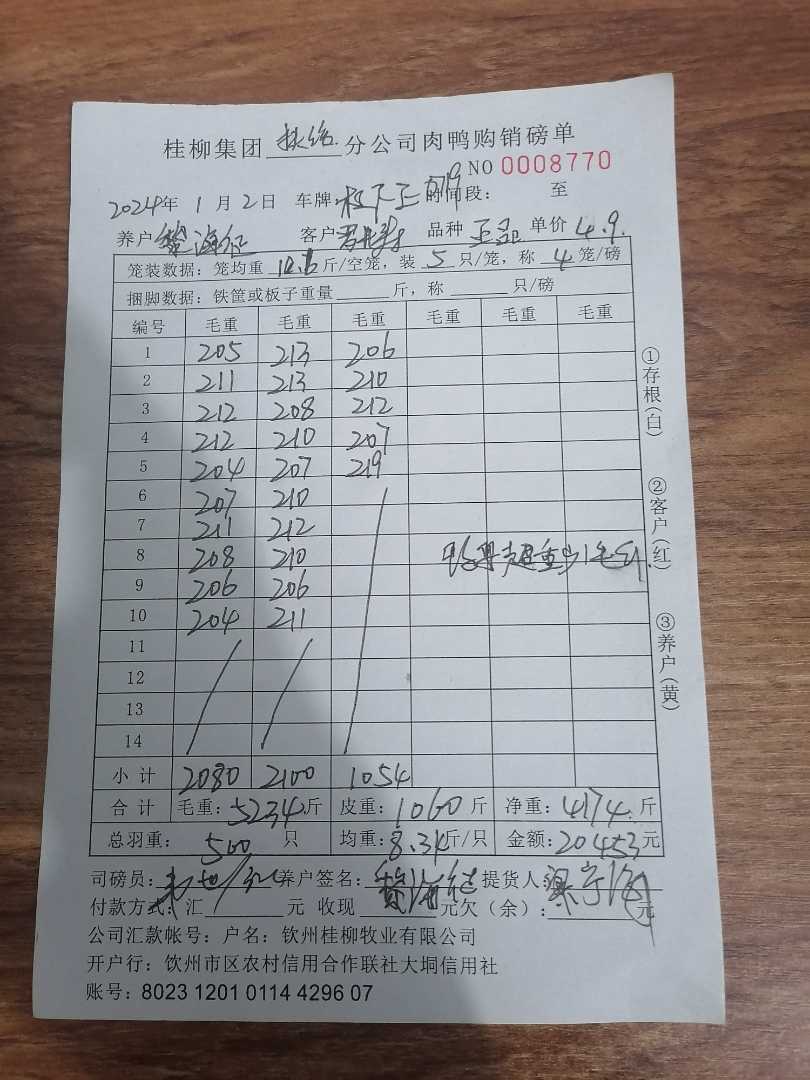 桂柳集团 扶绥 分公司肉鸭购销磅单
NO 0008770
2024年 1 月 2 日 车牌: 时间段: 至
养户: 海 客户: 品种 单价 4.9
笼装数据: 笼均重 10.6 斤/空笼, 装 5 只/笼, 称 4 笼/磅
捆脚数据: 铁筐或板子重量 斤, 称 只/磅
编号 毛重 毛重 毛重 毛重 毛重 毛重
1 205 213 206
2 211 213 210
3 212 208 212
4 212 210 207
5 204 207 219
6 207 210
7 211 212
8 208 210 超重少1毛
9 206 206
10 204 211
11
12
13
14
小计 2080 2100 1054
合计 毛重: 5234 斤 皮重: 1060 斤 净重: 4174 斤
总羽重: 500 只 均重: 8.34 斤/只 金额: 20453 元
司磅员: 养户签名: 提货人:
付款方式: 汇 元 收现 元欠(余): 元
公司汇款帐号: 户名: 钦州桂柳牧业有限公司
开户行: 饮州市区农村信用合作联社大垌信用社
账号: 8023 1201 0114 4296 07
①存根(白)
②客户(红)
③养户(黄)